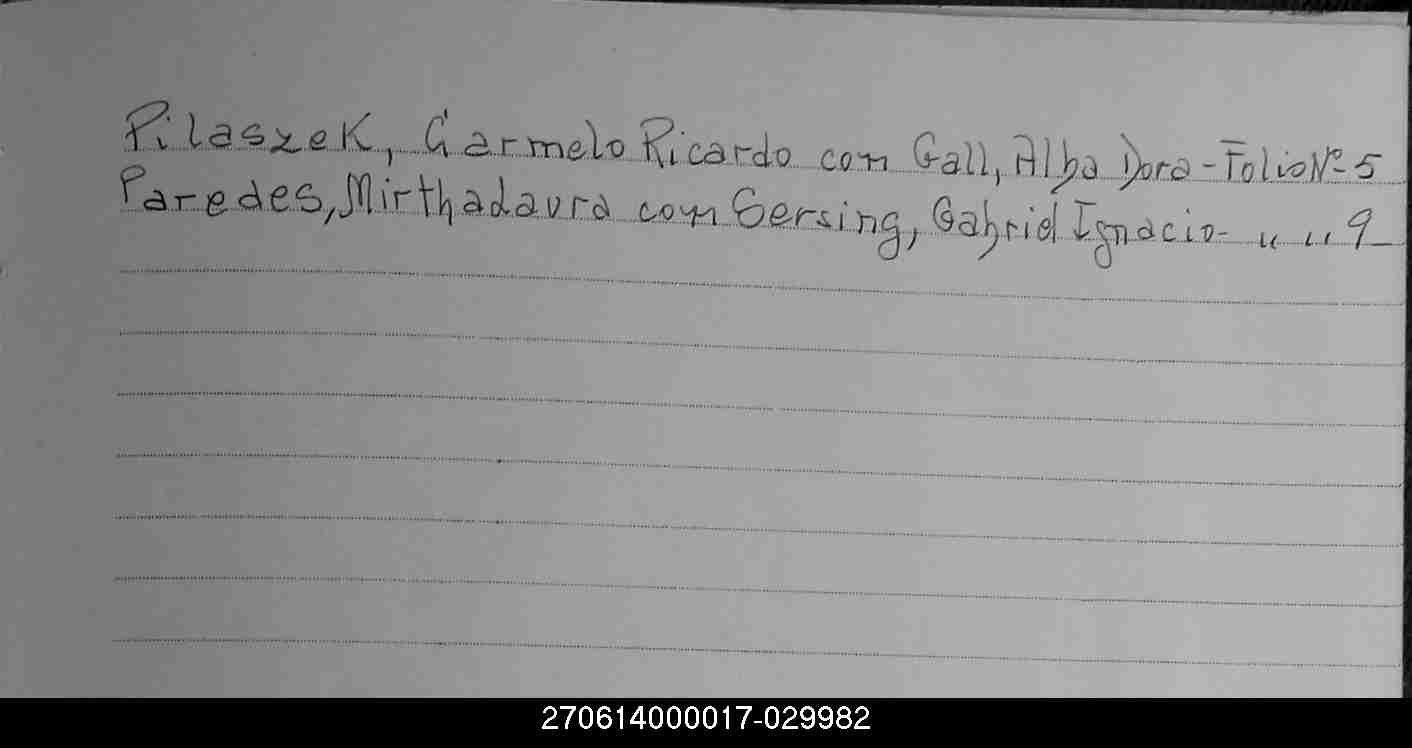 Pilaszek, Carmelo Ricardo con Gall, Alba Dora - Folio Nº 5
Paredes, Mirtha Laura con Gersing, Gabriel Ignacio - " " 9
270614000017-029982